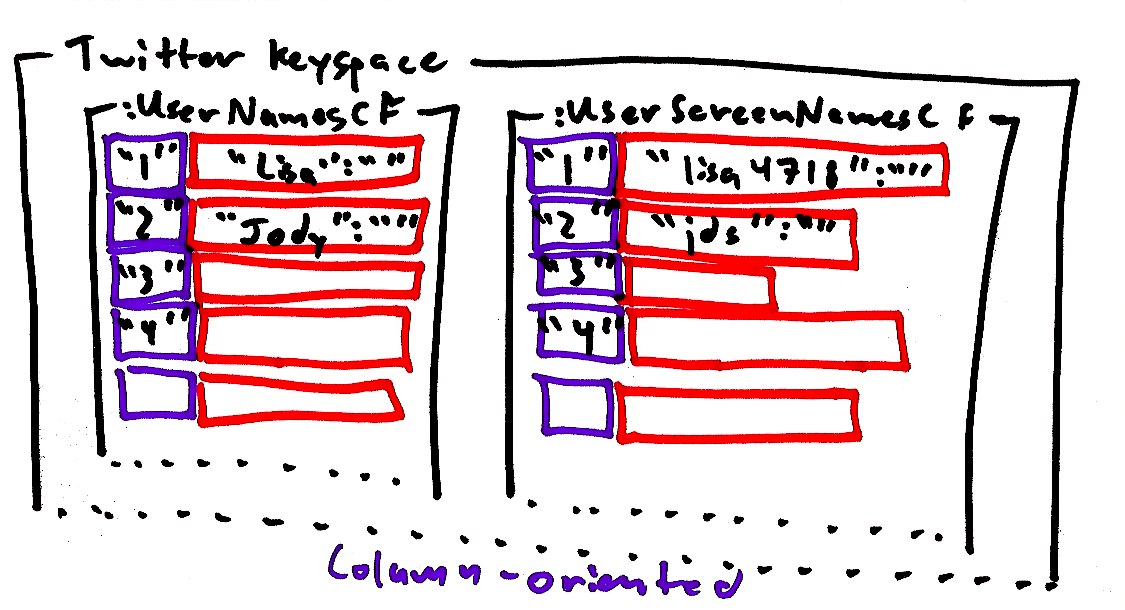 Twitter keyspace
:UserNamesCF
"1" "Lisa":""
"2" "Jody":""
"3"
"4"
:UserScreenNamesCF
"1" "lisa4718":""
"2" "jds":""
"3"
"4"
Column-oriented